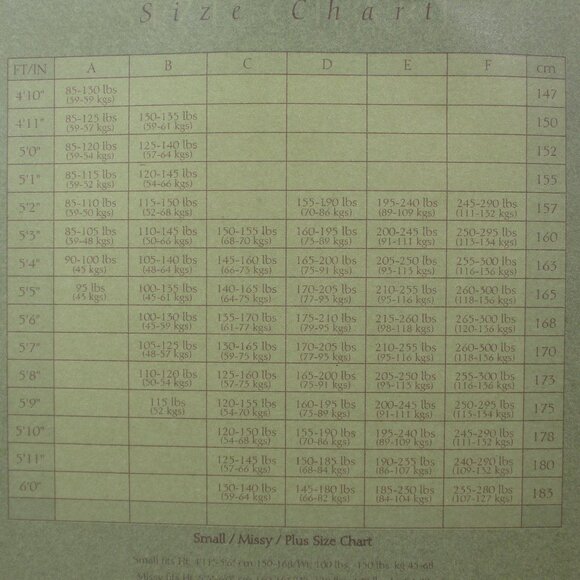 Size Chart
FT/IN A B C D E F cm
4'10" 85-130 lbs 147
(39-59 kgs)
4'11" 85-125 lbs 130-135 lbs 150
(39-57 kgs) (59-61 kgs)
5'0" 85-120 lbs 125-140 lbs 152
(39-54 kgs) (57-64 kgs)
5'1" 85-115 lbs 120-145 lbs 155
(39-52 kgs) (54-66 kgs)
5'2" 85-110 lbs 115-150 lbs 155-190 lbs 195-240 lbs 245-290 lbs 157
(39-50 kgs) (52-68 kgs) (70-86 kgs) (89-109 kgs) (111-132 kgs)
5'3" 85-105 lbs 110-145 lbs 150-155 lbs 160-195 lbs 200-245 lbs 250-295 lbs 160
(39-48 kgs) (50-66 kgs) (68-70 kgs) (75-89 kgs) (91-111 kgs) (113-134 kgs)
5'4" 90-100 lbs 105-140 lbs 145-160 lbs 165-200 lbs 205-250 lbs 255-300 lbs 163
(45 kgs) (48-64 kgs) (66-73 kgs) (75-91 kgs) (93-113 kgs) (116-136 kgs)
5'5" 95 lbs 100-135 lbs 140-165 lbs 170-205 lbs 210-255 lbs 260-300 lbs 165
(43 kgs) (45-61 kgs) (64-75 kgs) (77-93 kgs) (95-116 kgs) (118-136 kgs)
5'6" 100-130 lbs 135-170 lbs 175-210 lbs 215-260 lbs 265-300 lbs 168
(45-59 kgs) (61-77 kgs) (79-95 kgs) (98-118 kgs) (120-136 kgs)
5'7" 105-125 lbs 130-165 lbs 170-205 lbs 210-255 lbs 260-300 lbs 170
(48-57 kgs) (59-75 kgs) (77-93 kgs) (95-116 kgs) (118-136 kgs)
5'8" 110-120 lbs 125-160 lbs 165-200 lbs 205-250 lbs 255-300 lbs 173
(50-54 kgs) (57-73 kgs) (75-91 kgs) (93-113 kgs) (116-136 kgs)
5'9" 115 lbs 120-155 lbs 160-195 lbs 200-245 lbs 250-295 lbs 175
(52 kgs) (54-70 kgs) (73-89 kgs) (91-111 kgs) (113-134 kgs)
5'10" 120-150 lbs 155-190 lbs 195-240 lbs 245-290 lbs 178
(54-68 kgs) (70-86 kgs) (89-109 kgs) (111-132 kgs)
5'11" 125-145 lbs 150-185 lbs 190-235 lbs 240-290 lbs 180
(57-66 kgs) (68-84 kgs) (86-107 kgs) (109-132 kgs)
6'0" 130-140 lbs 145-180 lbs 185-230 lbs 235-280 lbs 183
(59-64 kgs) (66-82 kgs) (84-104 kgs) (107-127 kgs)
Small / Missy / Plus Size Chart
Small fits Ht. cm 150-168/Wt. 100 lbs. 150 lbs. kg 45-68